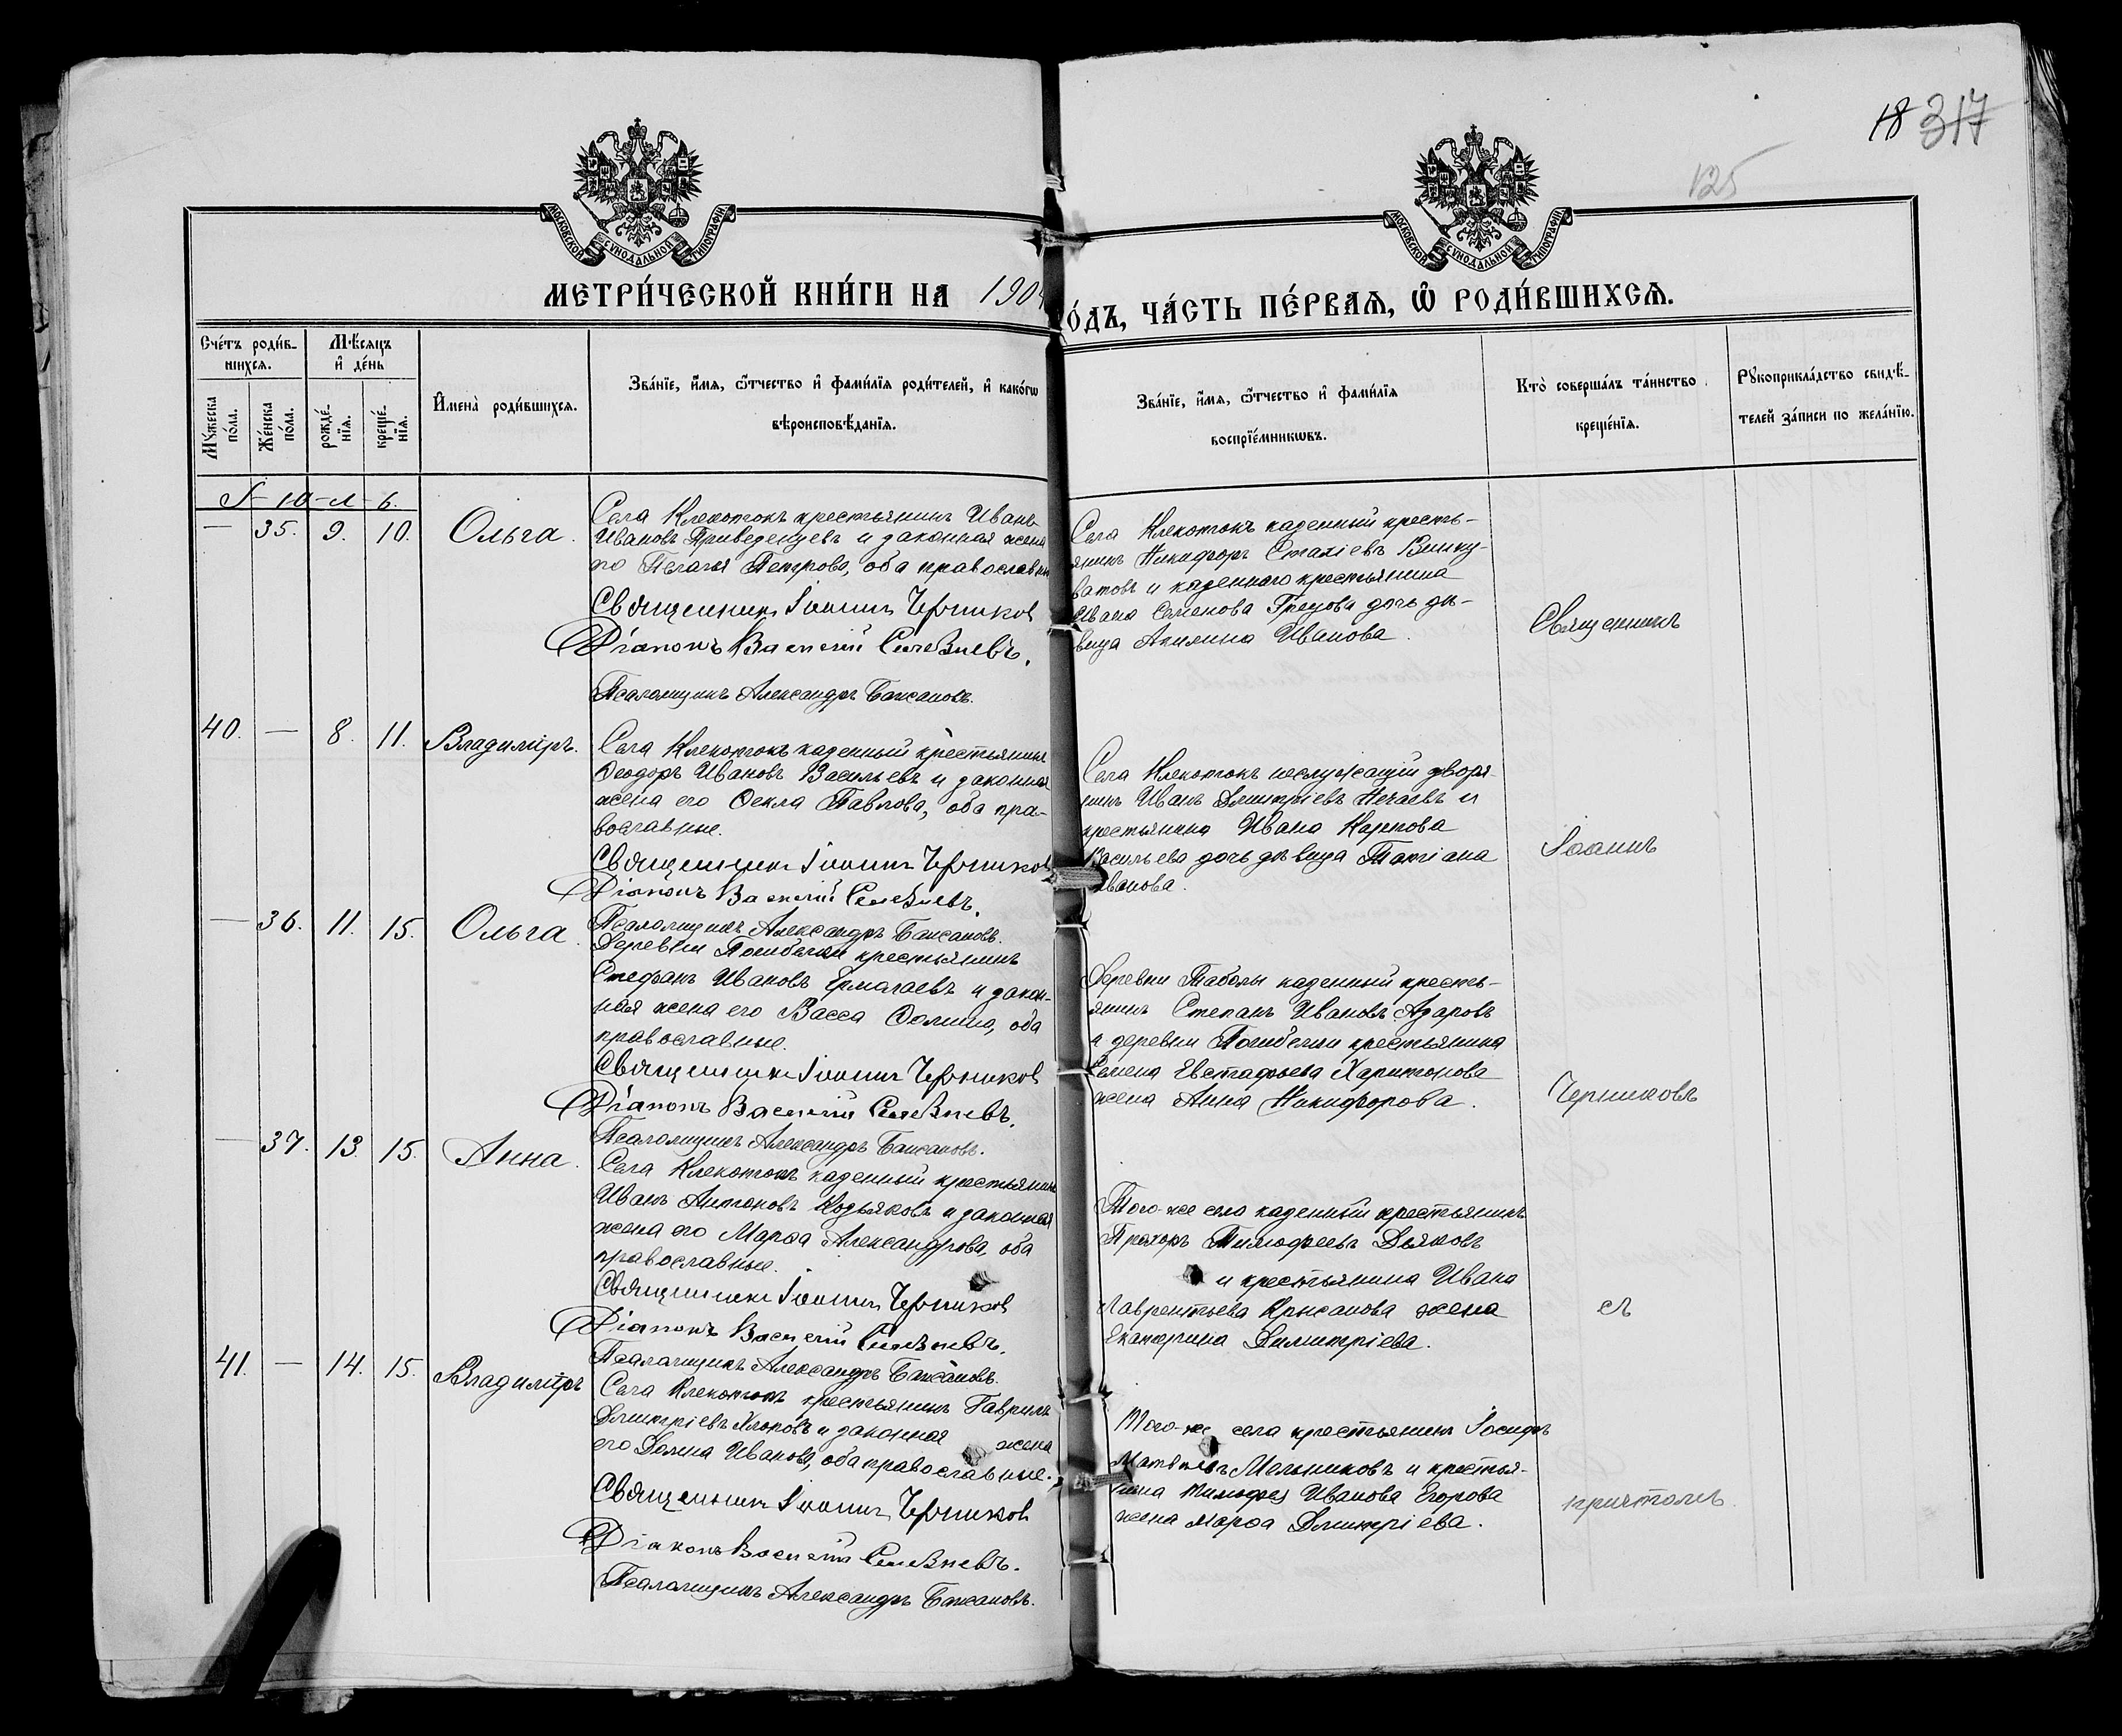 18 317
125
МОСКОВСКОЙ СѴНОДАЛЬНОЙ ТИПОГРАФІИ
МОСКОВСКОЙ СѴНОДАЛЬНОЙ ТИПОГРАФІИ
МЕТРИ́ЧЕСКОЙ КНИ́ГИ НА 1904
О́ДЪ, ЧА́СТЬ ПЕ́РВАЯ, Ѡ РОДИ́ВШИХСЯ.
Сче́тъ роди́в-
шихся.
Мꙋжеска по́ла.
Же́нска по́ла.
Мѣсяцъ и де́нь
рожде́-нїя.
креще́-нїя.
Имена̀ роди́вшихся.
Зва́нїе, и́мя, ѻ҆́тчество и фами́лїя роди́телей, и како́гѡ
вѣроисповѣ́данїя.
Зва́нїе, и́мя, ѻ҆́тчество и фами́лїя
воспрїе́мникѡвъ.
Кто̀ соверша́лъ та́инство
креще́нїя.
Рꙋкоприкла́дство свидѣ́-
телей за́писи по жела́нїю.
І-ю-л-ь.
— 35. 9. 10. Ольга.
Села Клекотокъ крестьянинъ Иванъ
Ивановъ Приведенцевъ и законная жена
его Пелагея Петрова, оба православн
Священникъ Іоаннъ Черников
Діаконъ Василій Селезневъ.
Псаломщикъ Александръ Бажановъ.
Села Клекотокъ казенный кресть-
янинъ Никифоръ Стахіевъ Винку-
ватовъ и казеннаго крестьянина
Ивана Семенова Грецова дочь дѣ-
вица Акилина Иванова.
Священникъ
40. — 8. 11. Владиміръ.
Села Клекотокъ казенный крестьянинъ
Ѳеодоръ Ивановъ Васильевъ и законная
жена его Ѳекла Павлова, оба пра-
вославные.
Священникъ Іоаннъ Черников
Діаконъ Василій Селезневъ.
Псаломщикъ Александръ Бажановъ.
Села Клекотокъ неслужащій дворя
нинъ Иванъ Димитріевъ Нечаевъ и
крестьянина Ивана Карпова
Васильева дочь дѣвица Татіана
Иванова.
Іоаннъ
— 36. 11. 15. Ольга.
Деревни Погибелки крестьянинъ
Стефанъ Ивановъ Ермолаевъ и закон-
ная жена его Васса Ѳомина, оба
православные.
Священникъ Іоаннъ Черников
Діаконъ Василій Селезневъ.
Псаломщикъ Александръ Бажановъ.
Деревни Таболы казенный кресть-
янинъ Степанъ Ивановъ Азаровъ
и деревни Погибелки крестьянина
Семена Евстафьева Харитонова
жена Анна Никифорова.
Черниковъ
— 37. 13. 15. Анна.
Села Клекотокъ казенный крестьянинъ
Иванъ Антоновъ Козьяковъ и законная
жена его Марѳа Александрова, оба
православные.
Священникъ Іоаннъ Черников
Діаконъ Василій Селезневъ.
Псаломщикъ Александръ Бажановъ.
Того-же села казенный крестьянинъ
Прохоръ Тимофеевъ Дьяковъ
и крестьянина Ивана
Лаврентьева Крысанова жена
Екатерина Димитріева.
съ
41. — 14. 15. Владиміръ
Села Клекотокъ крестьянинъ Гавріилъ
Димитріевъ Хлоповъ и законная жена
его Домна Иванова, оба православные.
Священникъ Іоаннъ Черников
Діаконъ Василій Селезневъ.
Псаломщикъ Александръ Бажановъ.
Того-же села крестьянинъ Іосифъ
Матвѣевъ Мельниковъ и крестья-
нина Тимофея Иванова Егорова
жена Марѳа Димитріева.
причтомъ.